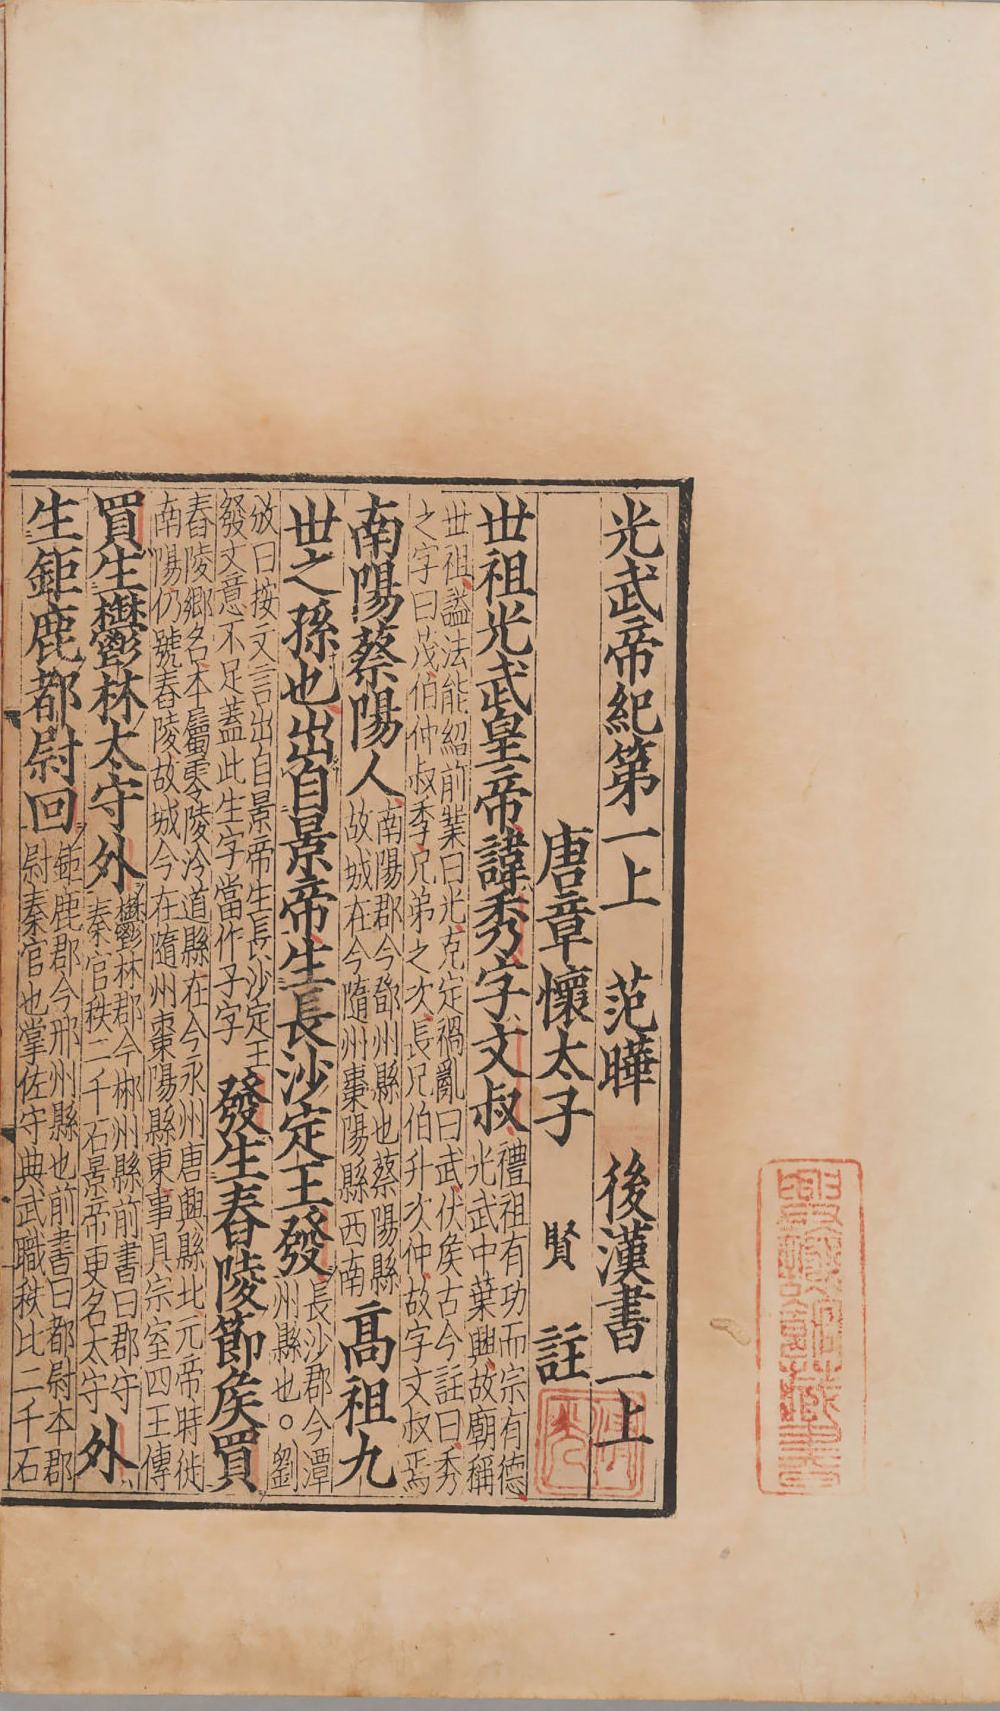 光武帝紀第一上　范曄　後漢書一上
唐章懷太子　賢　註
世祖光武皇帝諱秀字文叔
禮祖有功而宗有德
光武中葉興故廟稱
世祖謚法能紹前業曰光克定禍亂曰武伏侯古今註曰秀
之字曰茂伯仲叔季兄弟之次長兄伯升次仲故字文叔焉
南陽蔡陽人
南陽郡今鄧州縣也蔡陽縣
故城在今隨州棗陽縣西南
高祖九
世之孫也出自景帝生長沙定王發
長沙郡今潭
州縣也○劉
攽曰按文言出自景帝生長沙定王
發文意不足蓋此生字當作子字
發生舂陵節侯買
舂陵鄉名本屬零陵泠道縣在今永州唐興縣北元帝時徙
南陽仍號舂陵故城今在隨州棗陽縣東事具宗室四王傳
買生鬱林太守外
鬱林郡今郴州縣前書曰郡守
秦官秩二千石景帝更名太守
外
生鉅鹿都尉回
鉅鹿郡今邢州縣也前書曰都尉本郡
尉秦官也掌佐守典武職秩比二千石